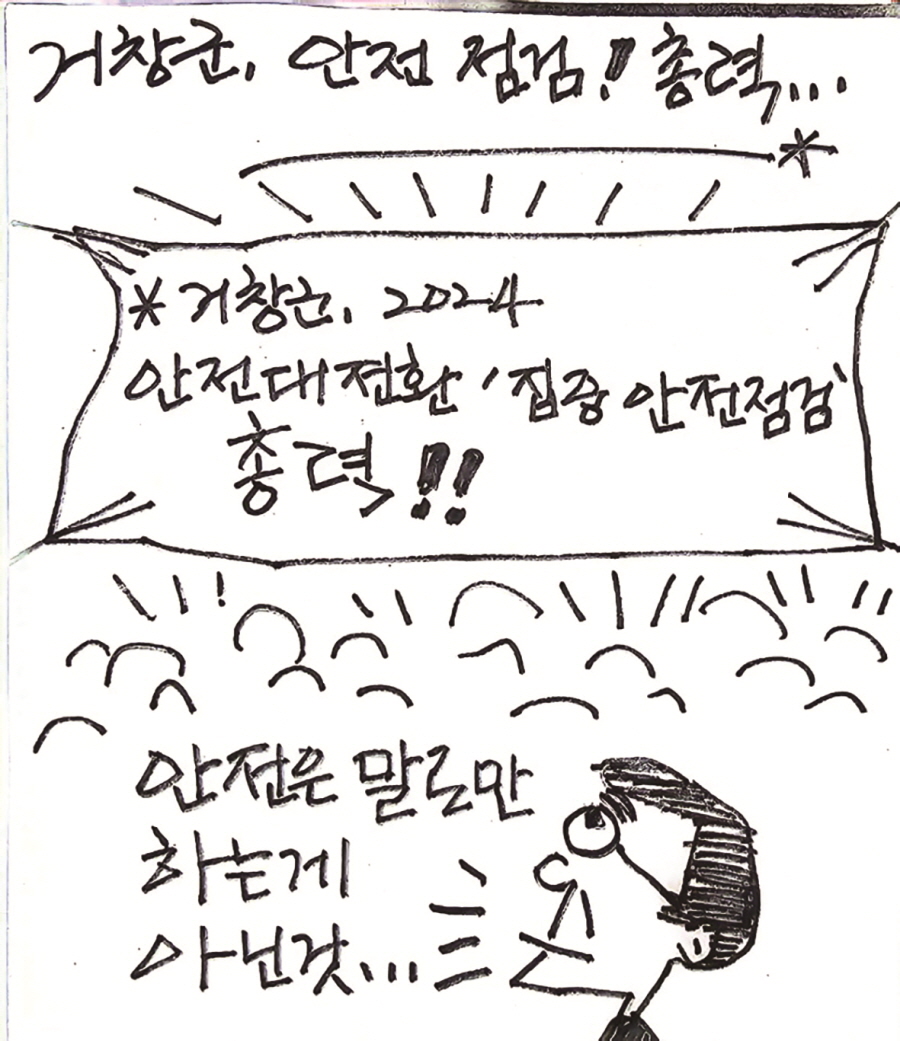 거창군, 안전 점검! 총력...
*
* 거창군, 2024
안전대전환 '집중 안전점검'
총력!!
안전은 말로만
하는게
아닌것...